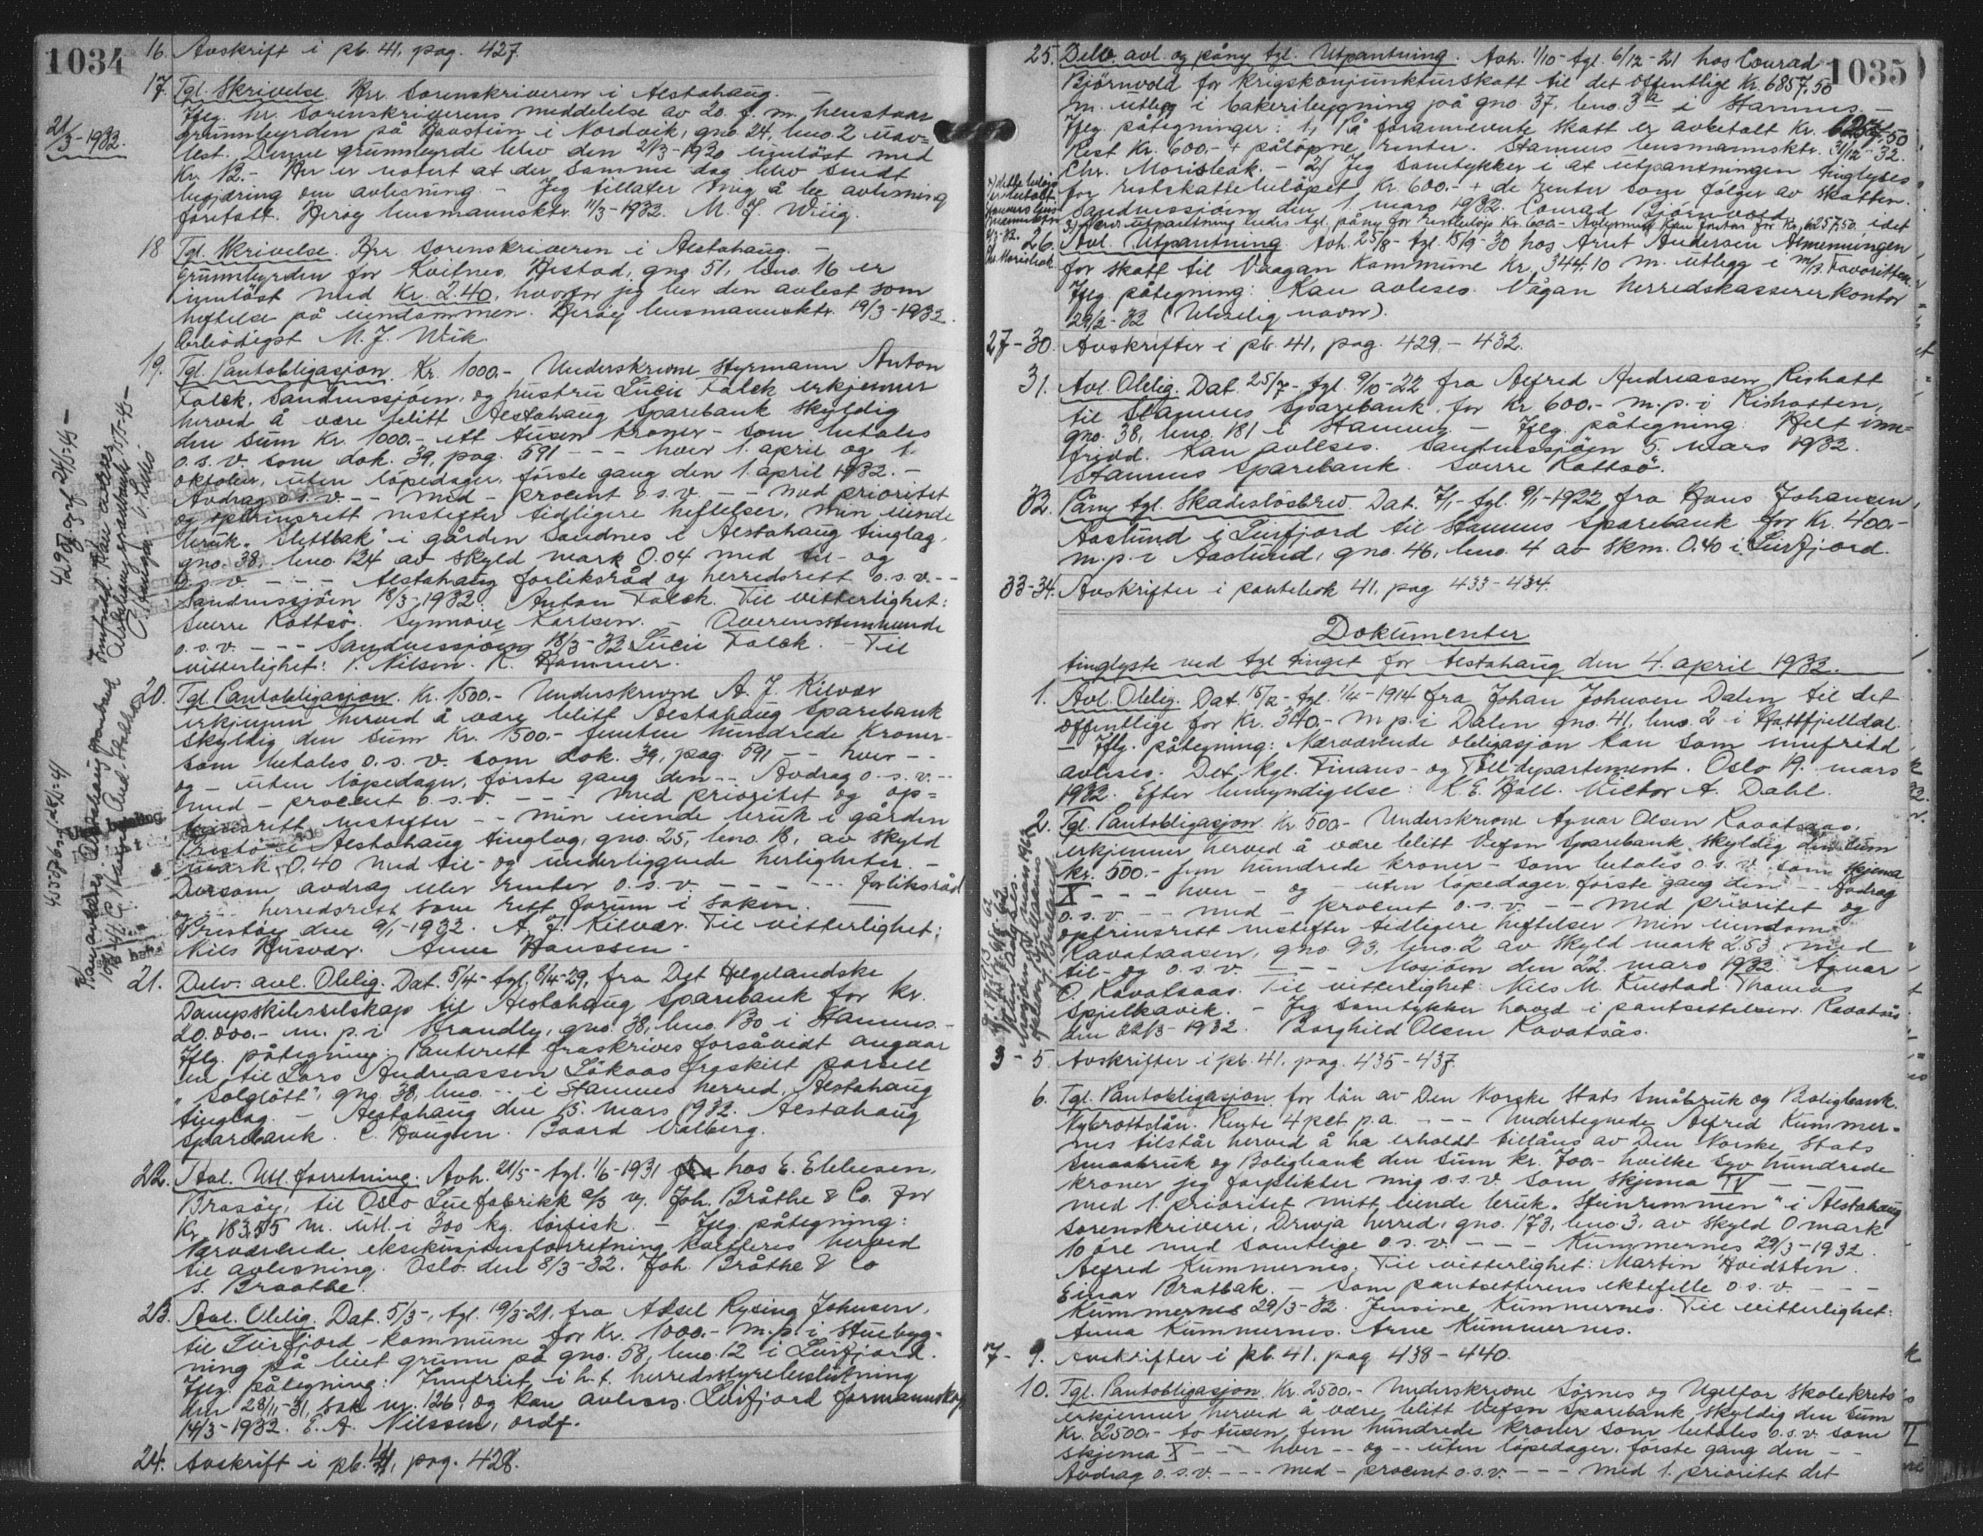 1034
16. Avskrift i pb. 41, pag. 427.
17. Tgl. Skrivelse. Hr. Sorenskriveren i Alstahaug. —
Iflg. hr. sorenskriverens meddelelse av 20. f. m. henstaar
21/3-1932.
grunnbyrden på Haustein i Nordvik, gno. 24, bno. 2 uav-
lest. Denne grunnbyrde blev den 21/3-1930 innløst med
Kr. 12.- Her er notert at der samme dag blev sendt
begjæring om avlesning. - Jeg tillater mig å be avlesning
foretatt. Herøy lensmannsktr. 11/3-1932. M. J. Wiig.
18. Tgl. Skrivelse. Hr. Sorenskriveren i Alstahaug. —
Grunnbyrden for Kvitnes, Hestad, gno 51, bno. 16 er
innløst med Kr. 2.40, hvorfor jeg ber den avlest som
heftelse på eiendommen. Herøy lensmannsktr. 19/3-1932.
Ærbødigst M. J. Wiik.
19. Tgl. Pantobligasjon. Kr. 1000.- Underskrevne Styrmann Anton
Falck, Sandnessjøen, og hustru Lucie Falck erkjenner
herved å være blitt Alstahaug Sparebank skyldig
den sum Kr. 1000.- ett tusen kroner - som betales
o.s.v. som dok. 39, pag. 591 - - - hver 1. april og 1.
oktober, uten løpedager, første gang den 1. april 1932. -
Avdrag o.s.v. - - med - procent o.s.v. - - med prioritet
og optrinsrett nestefter tidligere heftelser, min eiende
bruk „Slettbak" i gården Sandnes i Alstahaug tinglag,
gno. 38, bno. 124 av skyld mark 0.04 med til- og
o.s.v. - - - Alstahaug forliksråd og herredsrett o.s.v. - -
Sandnessjøen 18/3-1932. Anton Falck. Til vitterlighet:
Sverre Kottsø. Synnøve Karlsen. - Overensstemmende
o.s.v. - - - Sandnessjøen 18/3-32 Lucie Falck. - Til
vitterlighet: P. Nilsen. K. Hammer.
20. Tgl. Pantobligasjon. Kr. 1500.- Underskrevne A. J. Kilvær
erkjenner herved å være blitt Alstahaug Sparebank
skyldig den sum Kr. 1500.- femten hundrede Kroner-
som betales o.s.v. som dok. 39, pag 591 - - hver - -
og - uten løpedager, første gang den - - Avdrag o.s.v. - -
med - procent o.s.v. - - - med prioritet og op=
trinsrett nestefter - - min eiende bruk i gården
Prestø i Alstahaug tinglag, gno. 25, bno. 18, av skyld
mark 0.40 med til- og underliggende herligheter -
Dersom avdrag eller renter o.s.v. - - - - - - forliksråd
og - - - herredsrett som rett forum i saken.
Prestøy den 9/1-1932. A. J. Kilvær. Til vitterlighet:
Nils Husvær. Anne Hanssen -
21. Delv. avl. Oblig. Dat. 5/4- tgl. 8/4-29, fra Det Helgelandske
Dampskibsselskap til Alstahaug Sparebank for Kr.
20.000.- m. p. i Strandly, gno. 38, bno. 130 i Stamnes. -
Iflg. påtegning: Panterett fraskrives forsåvidt angaar
en til Lars Andreassen Låkaas fraskilt parsell
„Solglött", gno. 38, bno. -- i Stamnes herred, Alstahaug
tinglag. - Alstahaug den 15. mars 1932. Alstahaug
Sparebank. C. Haugen. Baard Valberg.
22. Avl. Utl. forretning. Avh. 21/5- tgl. 1/6-1931 hos E. Ellefsen,
Brasøy, til Oslo Luefabrikk a/s v/ Joh. Bråthe & Co. for
Kr. 183,55 m. utl. i 300 kg. tørfisk. - Iflg. påtegning:
Nærværende eksekusjonsforretning kvitteres herved
til avlesning. Oslo den 8/3-32. Joh. Bråthe & Co
S. Braathe.
23. Avl. Oblig. Dat. 5/3-, tgl. 19/3-21, fra Aksel Rysing Johnsen,
til Leirfjord kommune for Kr. 1000.- m. p. i stuebyg-
ning på leiet grunn på gno. 58, bno. 12 i Leirfjord.
Iflg. påtegning: Innfriet i h. t. herredsstyrebeslutning
den 28/11-31, sak nr. 126, og kan avleses. Leirfjord formannskap
14/3-1932. E. A. Nilssen, ordf.
24. Avskrift i pb. 41, pag. 428.
1035
25. Delv. avl. og påny tgl. Utpantning. Avh. 1/10- tgl. 6/12-21 hos Conrad
Bjørnvold for Krigskonjunkturskatt til det offentlige Kr. 6857,50
m. utlegg i bakeribygning på gno. 37, bno. 3a i Stamnes. -
Iflg. påtegninger: 1, På forannevnte skatt er avbetalt Kr. 6257,50
Rest Kr. 600.- + påløpne renter. Stamnes lensmannsktr. 31/12-32.
Chr. Morisbak. - 2/ Jeg samtykker i at utpantningen tinglyses
for restskattebeløpet Kr. 600.- + de renter som følger av skatten.
Sandnessjøen den 1. mars 1932. Conrad Bjørnvold
26. Avl. Utpantning. Avh. 25/8- tgl. 15/9-30 hos Arnt Andersen Almenningen
for skatt til Vaagan Kommune Kr. 344.10 m. utlegg i m/b. Favoritten.
Iflg. påtegning: Kan avleses. Vågan herredskassererkontor
29/2-32 (Uleselig navn).
27-30. Avskrifter i pb. 41, pag. 429. - 432.
31. Avl. Oblig. Dat. 25/7- tgl. 9/10-22 fra Alfred Andreassen Rishatt
til Stamnes Sparebank for Kr. 600.- m. p. i Rishatten,
gno. 38, bno. 181 i Stamnes. - Iflg. påtegning: Helt inn-
fridd. Kan avleses. Sandnessjøen 5. mars 1932.
Stamnes Sparebank. Sverre Kottsø.
32. Påny tgl. Skadesløsbrev. Dat. 7/1- tgl. 9/1-1922 fra Hans Johansen
Aaslund i Leirfjord til Stamnes Sparebank for Kr. 400.-
m. p. i Aaslund, gno. 46, bno. 4 av skm. 0.40 i Leirfjord.
33-34. Avskrifter i pantebok 41, pag 433-434.
Dokumenter
tinglyste ved tgl tinget for Alstahaug den 4. april 1932.
1. Avl. Oblig. Dat. 15/2- tgl. 1/4-1914 fra Johan Johnsen Dalen til det
offentlige for Kr. 340.- m. p. i Dalen gno. 41, bno. 2 i Hattfjelldal.
- Iflg. påtegning: Nærværende obligasjon kan som innfridd
avleses. Det Kgl. Finans- og Tolldepartement. Oslo 19. mars
1932. Efter bemyndigelse: K. E. Holl. Victor A. Dahl.
2. Tgl. Pantobligasjon. Kr. 500.- Underskrevne Agnar Olsen Kavatsaas,
erkjenner herved å være blitt Vefsn Sparebank skyldig den sum
kr. 500.- fem hundrede kroner - som betales o.s.v. som skjema
X - - - hver - og - uten løpedager, første gang den - - Avdrag
o.s.v. - - - med - procent o.s.v. - - med prioritet og
optrinsrett nestefter tidligere heftelser min eiendom
Kavatsaasen, gno. 93, bno. 2 av skyld mark 2.53 med
til- og o.s.v. - - - Mosjøen den 22. mars 1932. Agnar
O. Kavatsaas. Til vitterlighet: Nils M. Kulstad. Thomas
Spjelkavik. - Jeg samtykker herved i pantsettelsen. Kavatsås
den 22/3-1932. Borghild Olsen Kavatsås.
3-5 Avskrifter i pb. 41, pag. 435-437.
6. Tgl. Pantobligasjon for lån av Den Norske Stats Småbruk og Boligbank.
Nybrottslån. Rente 4 pct p.a. - - - Undertegnede Alfred Kummer-
nes tilstår herved å ha erholdt tillåns av Den Norske Stats
Smaabruk og Boligbank den sum kr. 700.- hvilke syv hundrede
kroner jeg forplikter mig o.s.v. som skjema IV - -
med 1. prioritet mitt eiende bruk „Steinremmen" i Alstahaug
sorenskriveri, Drevja herred, gno. 173, bno. 3, av skyld 0 mark
10 øre med samtlige o.s.v. - - - Kummernes 29/3-1932.
Alfred Kummernes. Til vitterlighet: Martin Hvidsten.
Einar Bratbak. - Som pantsetterens ektefelle o.s.v. - - -
Kummernes 29/3-32. Jensine Kummernes. Til vitterlighet:
Anna Kummernes. Arne Kummernes.
7-9. Avskrifter i pb. 41, pag 438-440.
10. Tgl. Pantobligasjon. Kr. 2500.- Underskrevne Sørnes og Ugelfor skolekrets
erkjenner herved å være blitt Vefsn Sparebank skyldig den sum
Kr. 2500.- to tusen fem hundrede kroner som betales o.s.v. som
skjema X - - - hver - - og - - uten løpedager, første gang den - -
Avdrag o.s.v. - - - med - procent o.s.v. - - - med 1. prioritet det